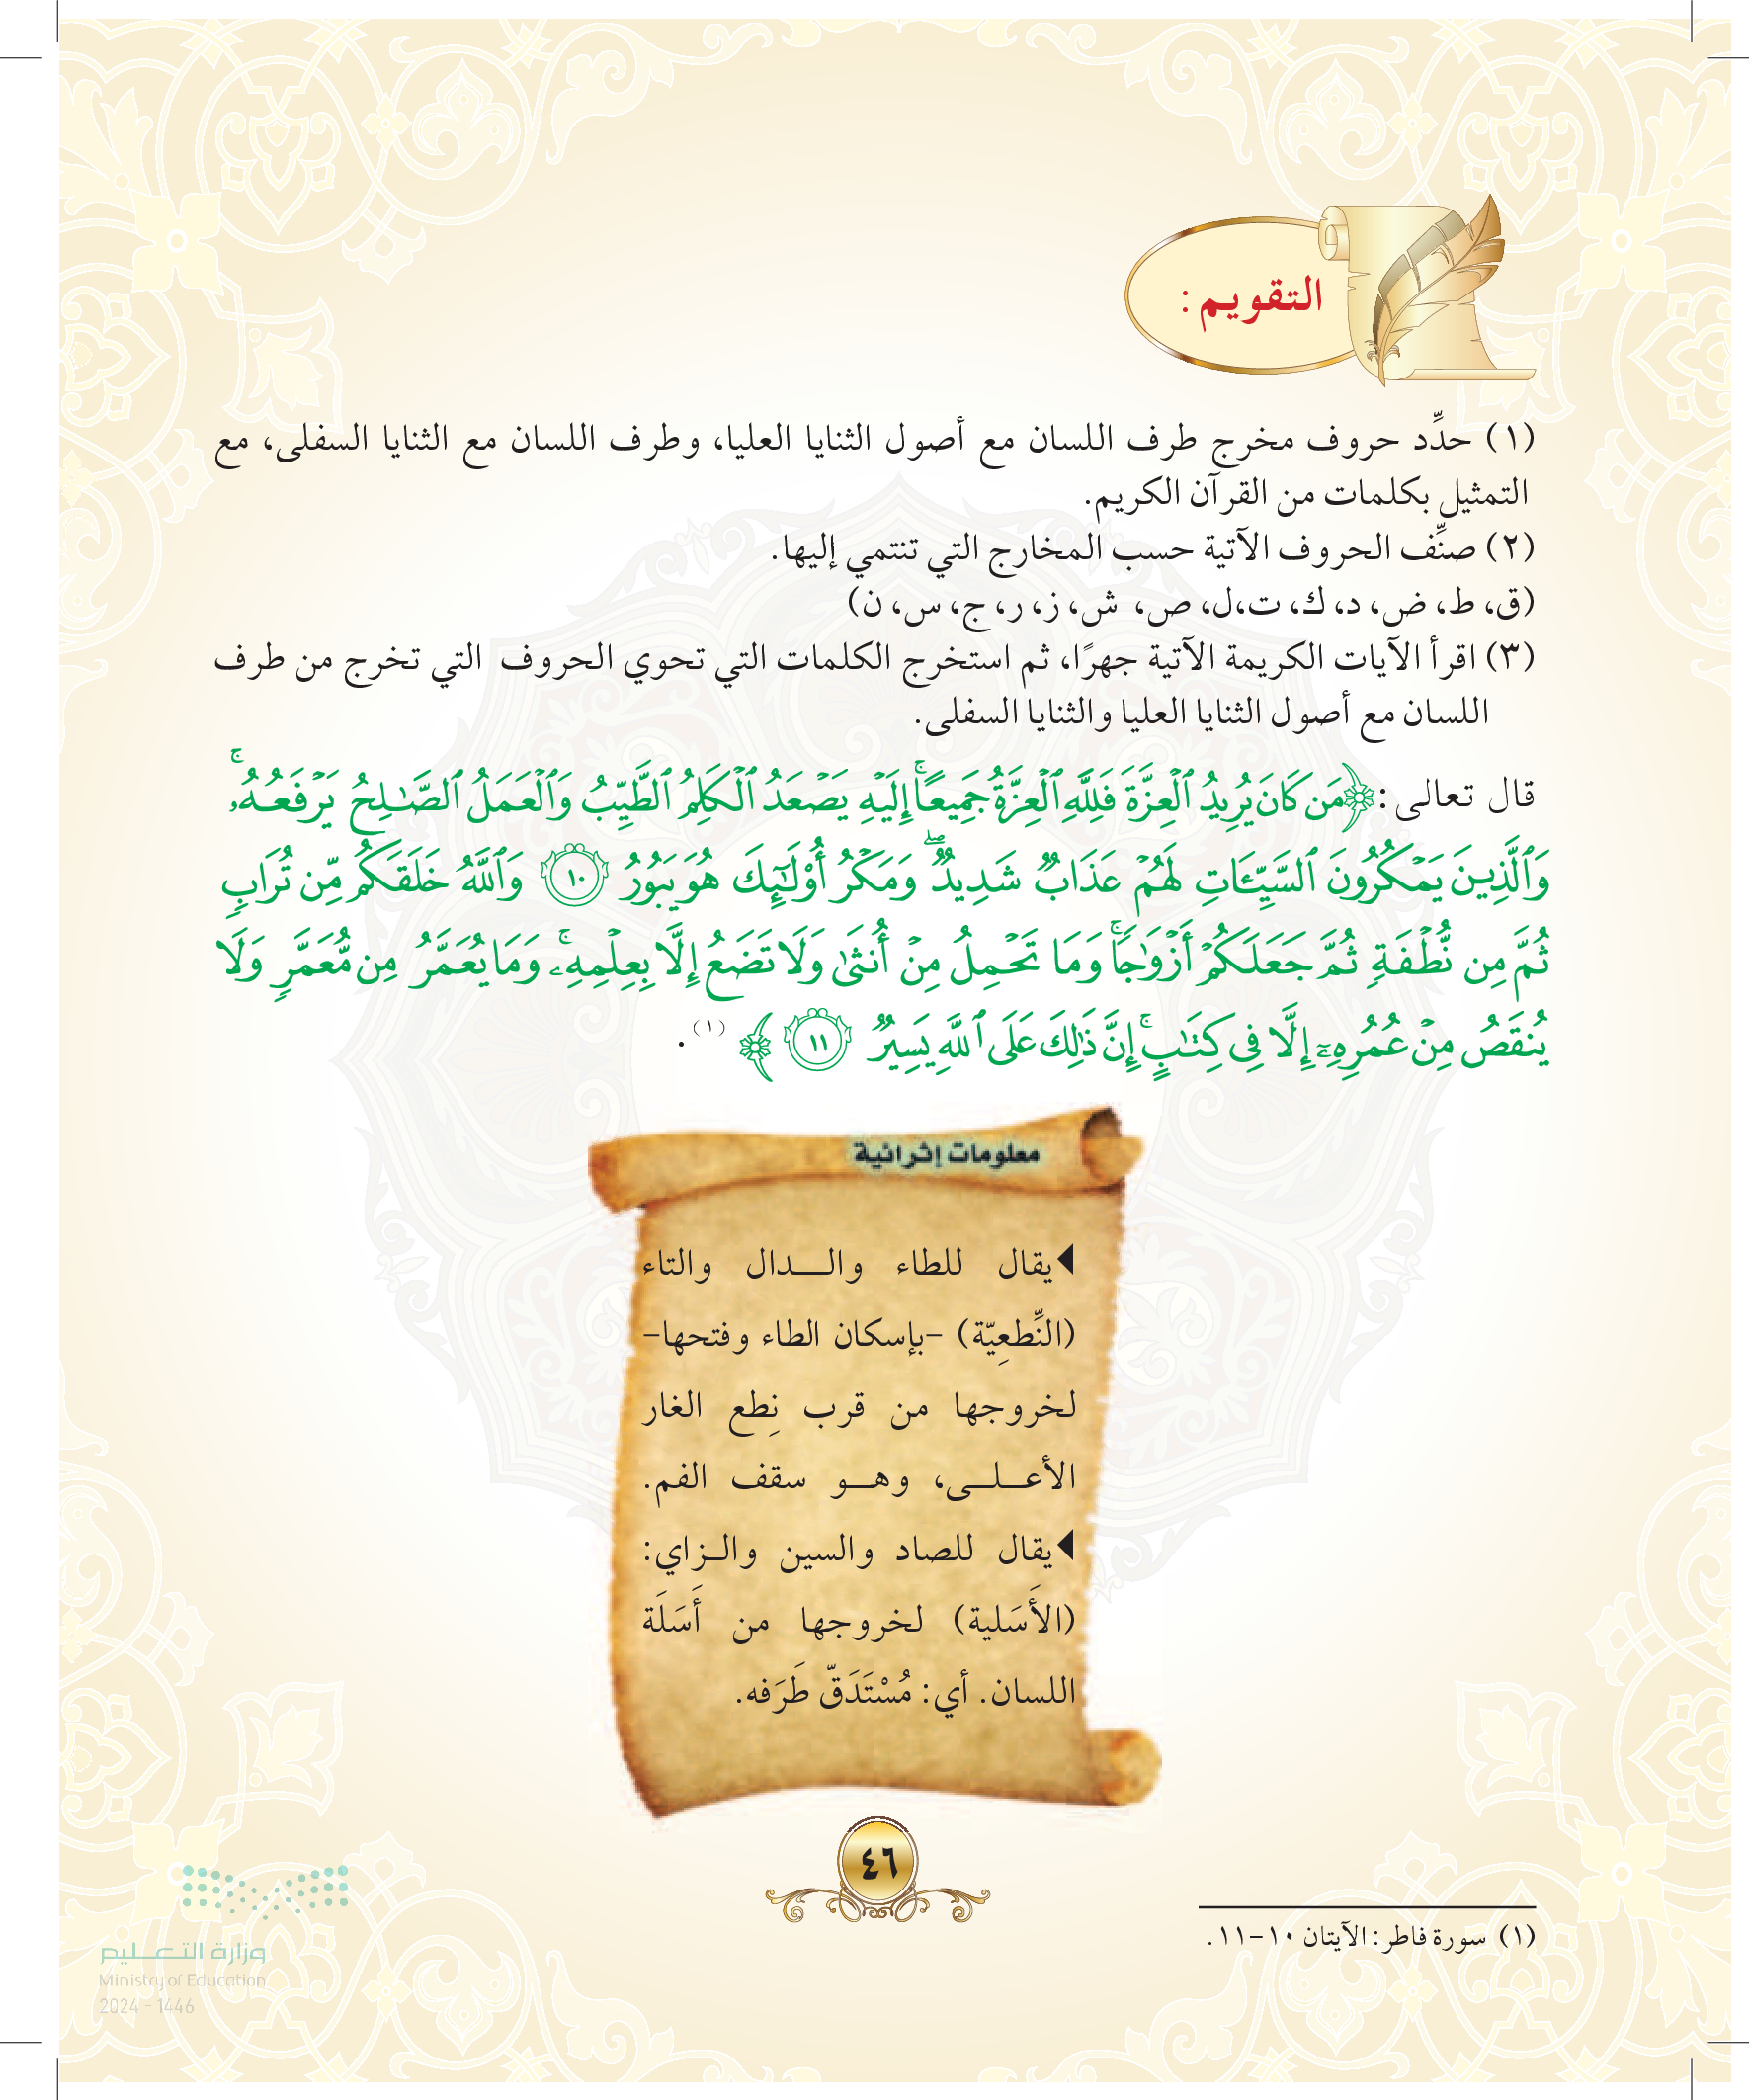 التقويم :
(١) حدِّد حروف مخرج طرف اللسان مع أصول الثنايا العليا، وطرف اللسان مع الثنايا السفلى، مع
التمثيل بكلمات من القرآن الكريم.
(٢) صنِّف الحروف الآتية حسب المخارج التي تنتمي إليها.
(ق، ط، ض، د، ك، ت،ل، ص، ش، ز، ر، ج، س، ن)
(٣) اقرأ الآيات الكريمة الآتية جهرًا، ثم استخرج الكلمات التي تحوي الحروف التي تخرج من طرف
اللسان مع أصول الثنايا العليا والثنايا السفلى.
قال تعالى: ﴿مَن كَانَ يُرِيدُ ٱلۡعِزَّةَ فَلِلَّهِ ٱلۡعِزَّةُ جَمِيعًاۚ إِلَيۡهِ يَصۡعَدُ ٱلۡكَلِمُ ٱلطَّيِّبُ وَٱلۡعَمَلُ ٱلصَّٰلِحُ يَرۡفَعُهُۥۚ
وَٱلَّذِينَ يَمۡكُرُونَ ٱلسَّيِّـَٔاتِ لَهُمۡ عَذَابٞ شَدِيدٞۖ وَمَكۡرُ أُوْلَٰٓئِكَ هُوَ يَبُورُ ١٠ وَٱللَّهُ خَلَقَكُم مِّن تُرَابٖ
ثُمَّ مِن نُّطۡفَةٖ ثُمَّ جَعَلَكُمۡ أَزۡوَٰجٗاۚ وَمَا تَحۡمِلُ مِنۡ أُنثَىٰ وَلَا تَضَعُ إِلَّا بِعِلۡمِهِۦۚ وَمَا يُعَمَّرُ مِن مُّعَمَّرٖ وَلَا
يُنقَصُ مِنۡ عُمُرِهِۦٓ إِلَّا فِي كِتَٰبٍۚ إِنَّ ذَٰلِكَ عَلَى ٱللَّهِ يَسِيرٞ ١١﴾ (١).
معلومات إثرائية
يقال للطاء والـــدال والتاء
(النِّطعِيّة) -بإسكان الطاء وفتحها-
لخروجها من قرب نِطع الغار
الأعـــلـــى، وهـــو سقف الفم.
يقال للصاد والسين والــزاي:
(الأَسَلية) لخروجها من أَسَلَة
اللسان. أي: مُسْتَدَقّ طَرَفه.
٤٦
(١) سورة فاطر: الآيتان ١٠-١١.
وزارة التعـــليم
Ministry of Education
2024 - 1446